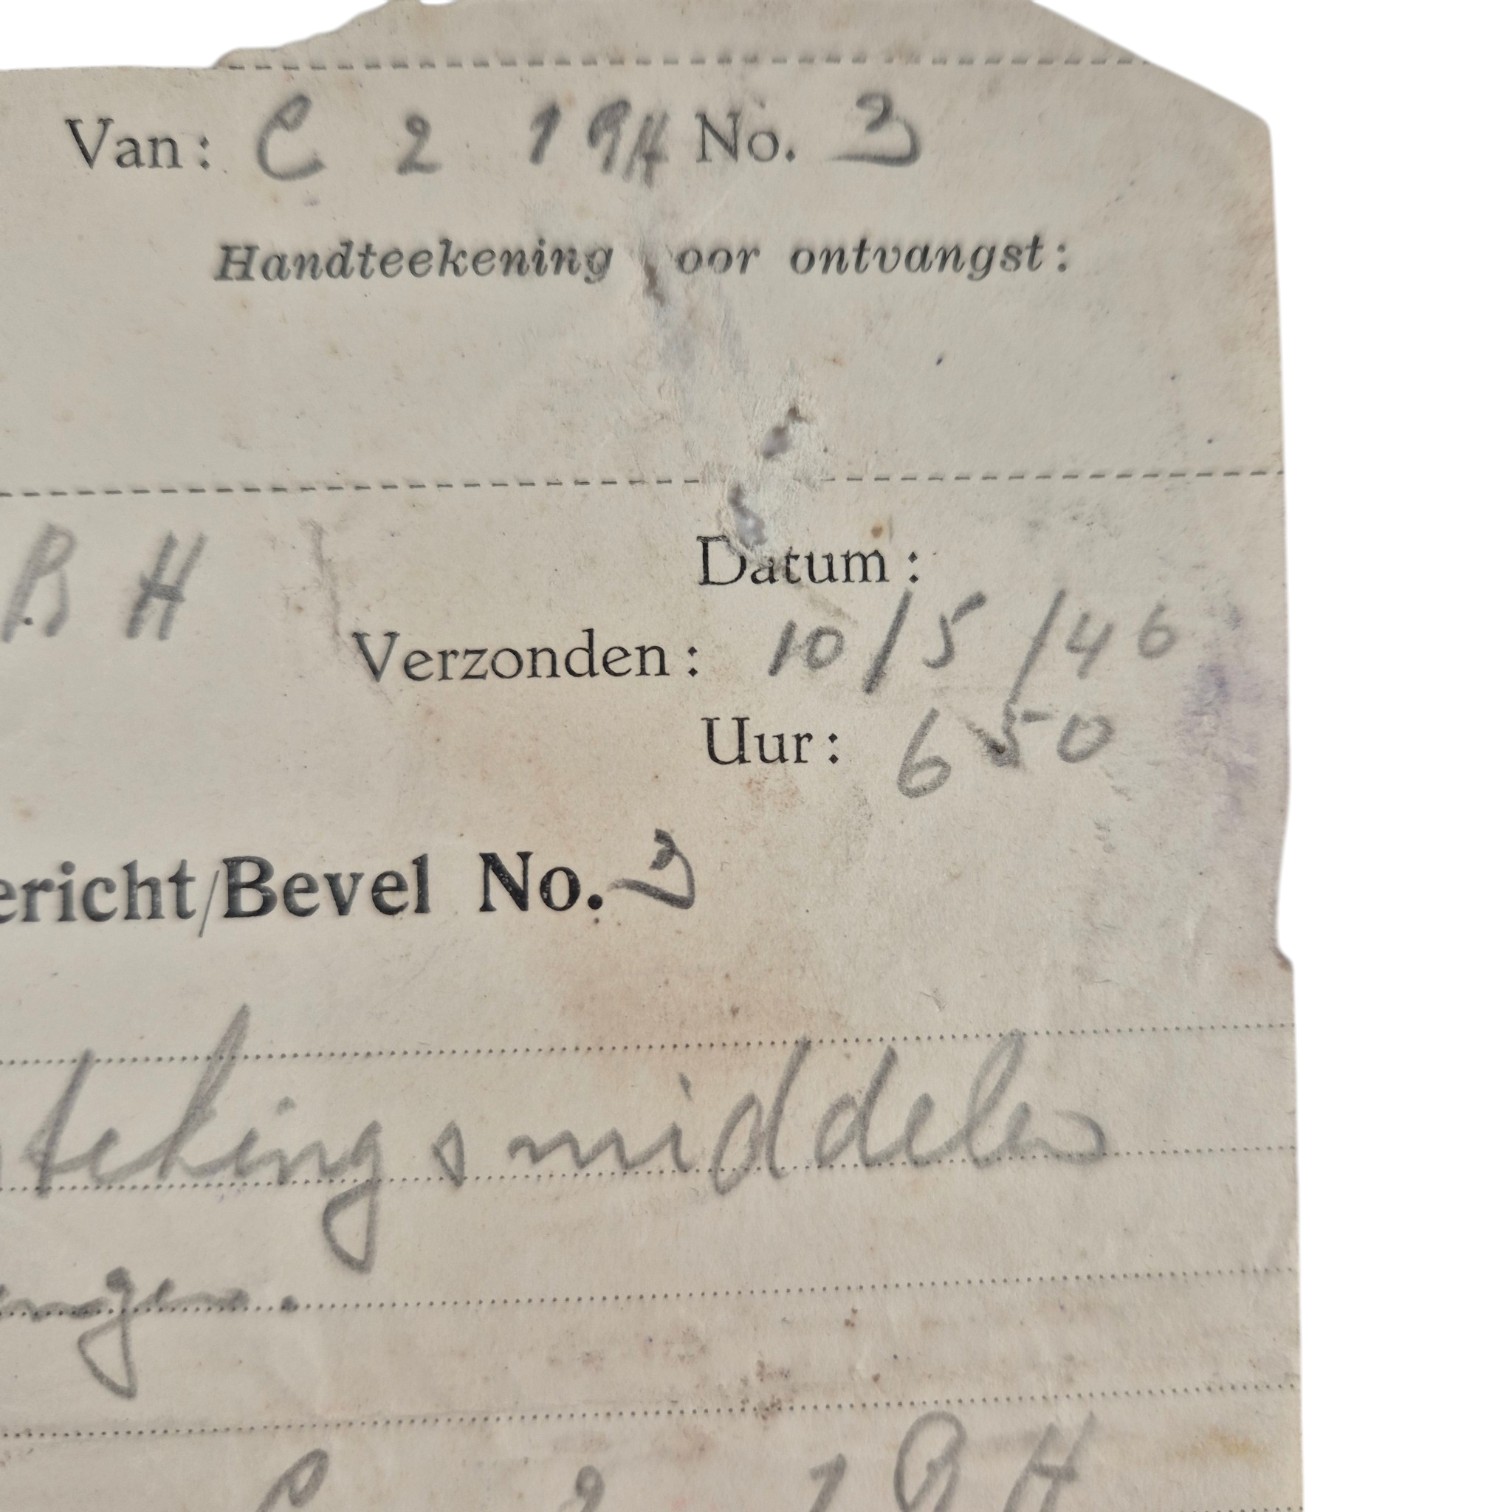 Van: C 2 19H No. 3
Handteekening oor ontvangst:
BH
Datum:
Verzonden: 10/5/46
Uur: 650
ericht/Bevel No. 3
tekingsmiddelen
engen.
C 2 19H